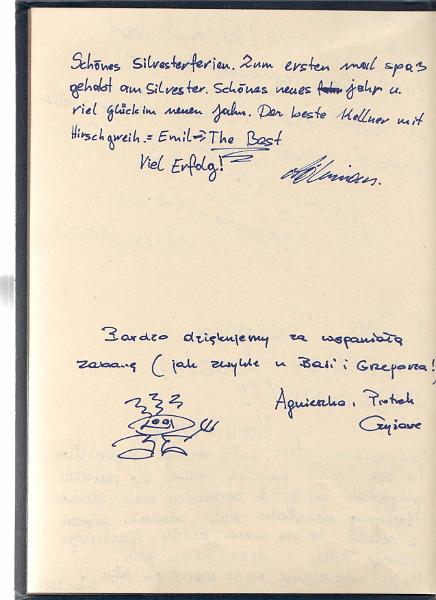 Schönes Silvesterferien. Zum ersten mal spaß
gehabt am Silvester. Schönes neues jahr u.
viel glück im neuen Jahr. Der beste Kellner mit
Hirschgweih = Emil → The Best
Viel Erfolg!
Bardzo dziękujemy za wspaniałą
zabawę (jak zwykle u Basi i Grzegorza!)
Agnieszka i Piotrek